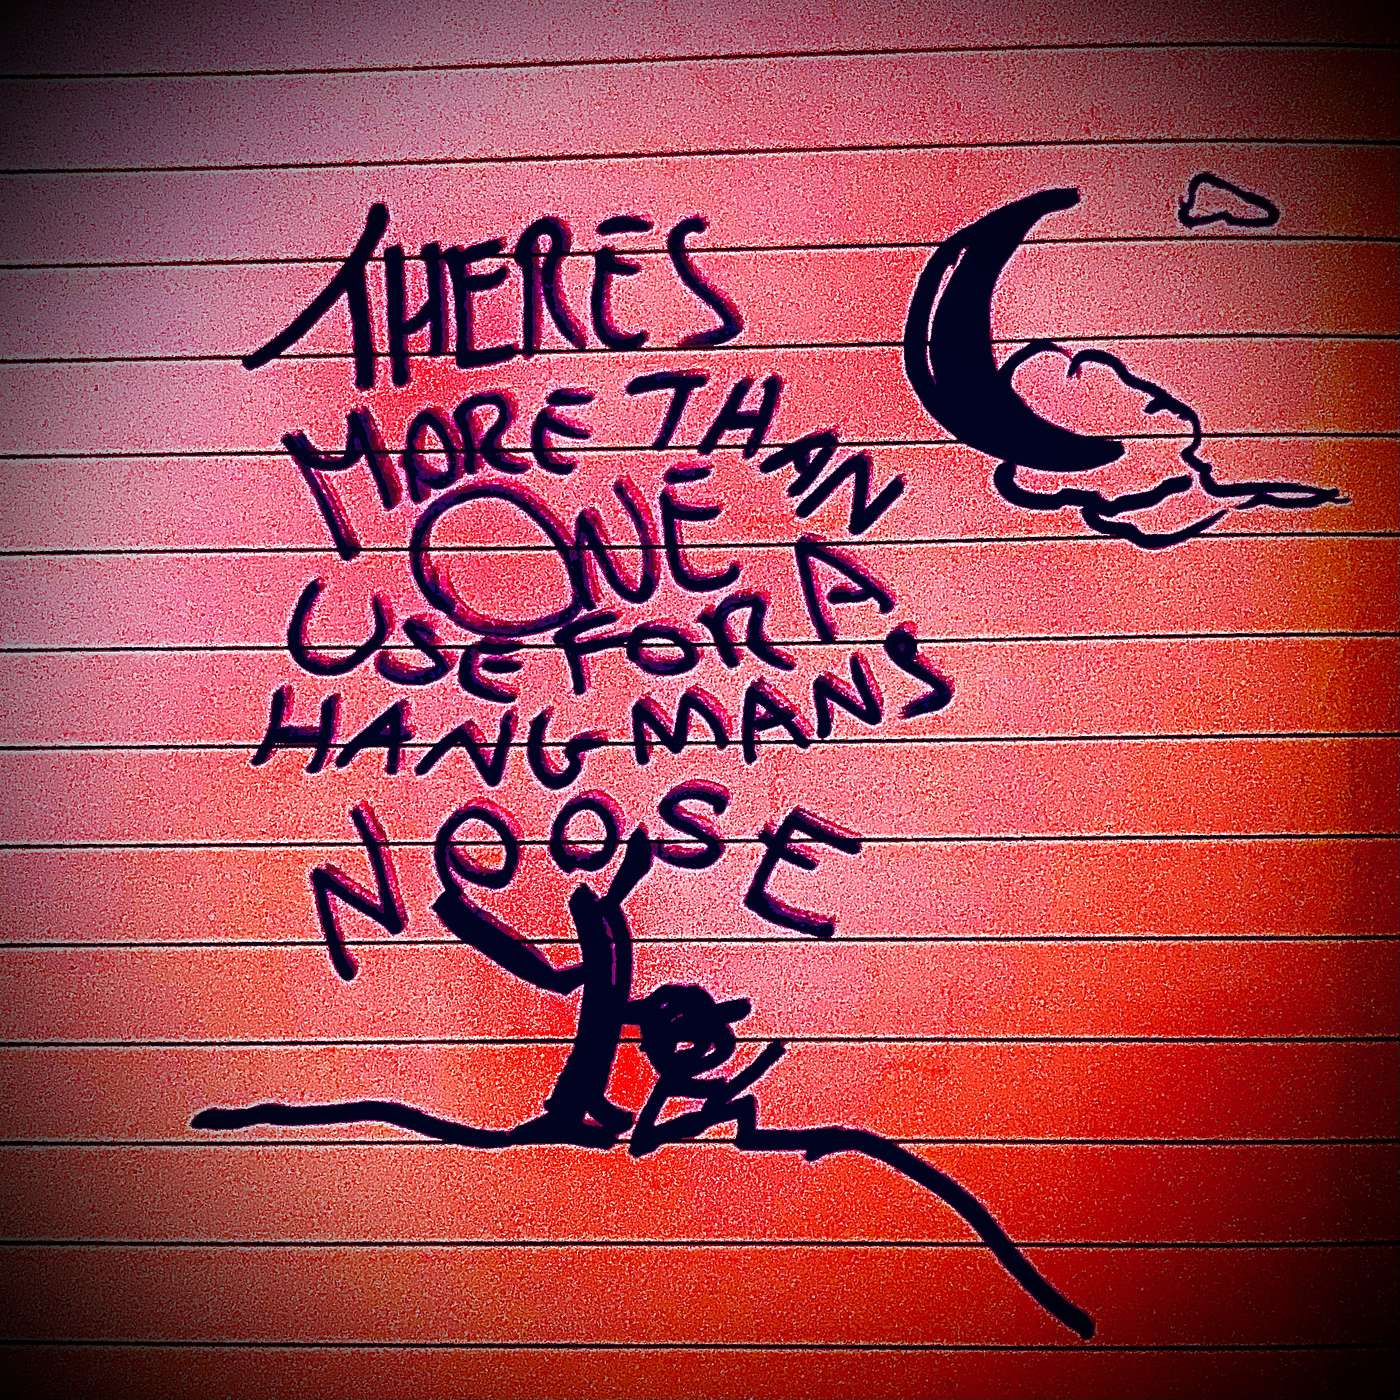 THERES
MORE THAN
ONE
USE FOR A
HANGMANS
NOOSE